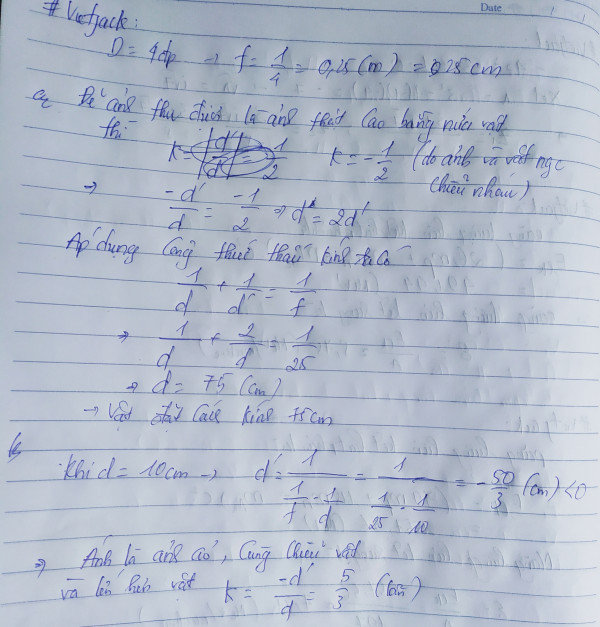 # Vietjack:
Date
D = 4dp → f = 1/4 = 0,25 (m) = 25 cm
a, Để ảnh thu được là ảnh thật cao bằng nửa vật
thì K = -1/2 (do ảnh và vật ngc
chiều nhau)
⇒ -d'/d = -1/2 ⇒ d = 2d'
Áp dụng công thức thấu kính ta có
1/d + 1/d' = 1/f
⇒ 1/d + 2/d = 1/25
⇒ d = 75 (cm)
→ Vật đặt cách kính 75cm
b,
Khi d = 10cm → d' = 1/(1/f - 1/d) = 1/(1/25 - 1/10) = -50/3 (cm) < 0
⇒ Ảnh là ảnh ảo, cùng chiều vật
và lớn hơn vật K = -d'/d = 5/3 (lần)